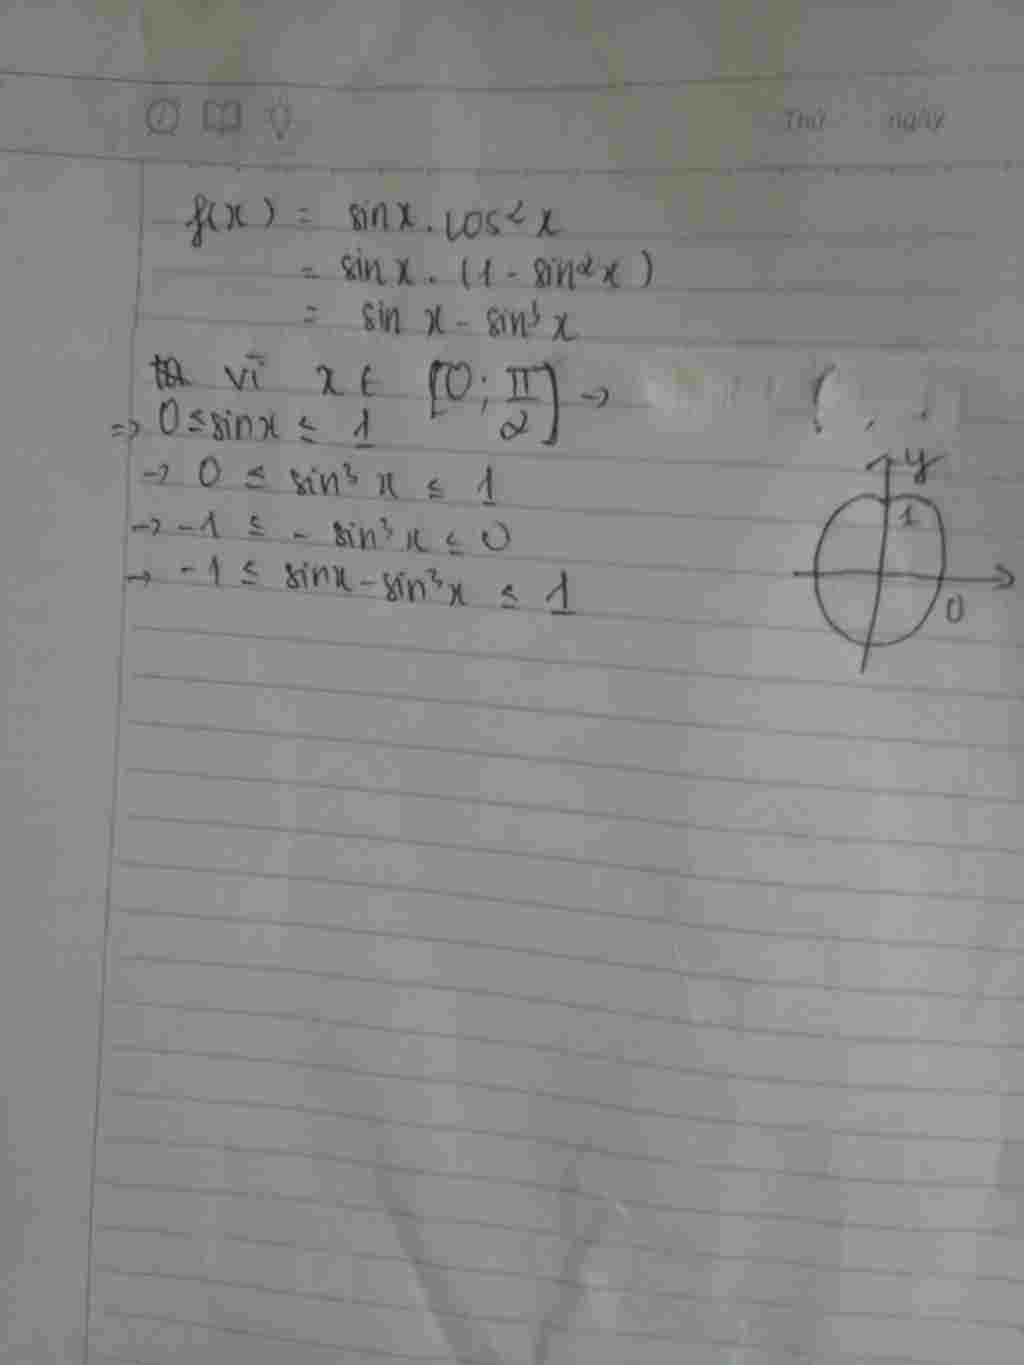 Thứ ngày
f(x) = sinx.cos²x
= sinx.(1-sin²x)
= sin x - sin³x
vì x ∈ [0; π/2] →
⇒ 0 ≤ sinx ≤ 1
→ 0 ≤ sin³x ≤ 1
→ -1 ≤ - sin³x ≤ 0
→ -1 ≤ sinx - sin³x ≤ 1
y
1
0